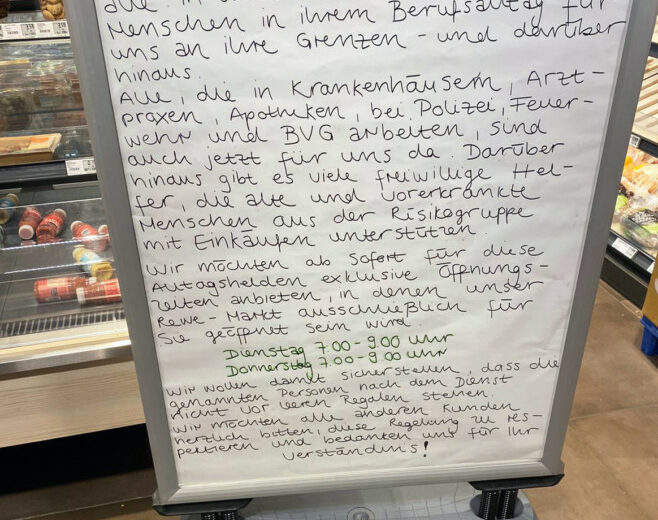 alle in
Menschen in ihrem Berufsalltag für
uns an ihre Grenzen - und darüber
hinaus.
Alle, die in Krankenhäusern, Arzt-
praxen, Apotheken, bei Polizei, Feuer-
wehr und BVG arbeiten, sind
auch jetzt für uns da. Darüber
hinaus gibt es viele freiwillige Hel-
fer, die alte und vorerkrankte
Menschen aus der Risikogruppe
mit Einkäufen unterstützen.
Wir möchten ab sofort für diese
Alltagshelden exklusive Öffnungs-
zeiten anbieten, in denen unser
Rewe-Markt ausschließlich für
Sie geöffnet sein wird.
Dienstag 7.00-9.00 Uhr
Donnerstag 7.00-9.00 Uhr
Wir wollen damit sicherstellen, dass die
genannten Personen nach dem Dienst
nicht vor leeren Regalen stehen.
Wir möchten alle anderen Kunden
herzlich bitten, diese Regelung zu res-
pektieren und bedanken uns für Ihr
Verständnis!